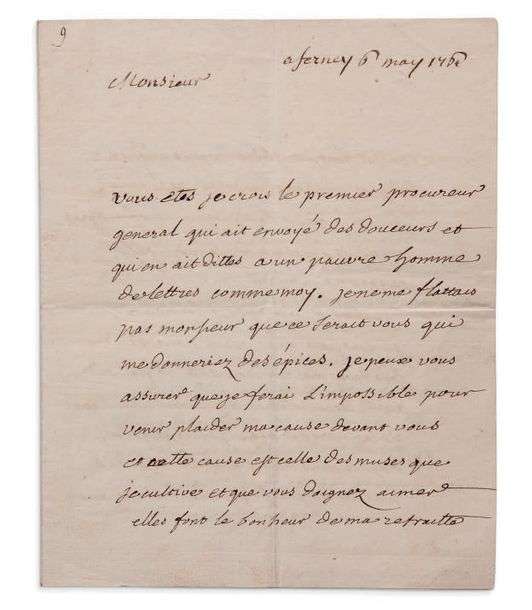 9
a ferney 6 may 176
Monsieur
vous etes je crois le premier procureur
general qui ait envoyé des douceurs et
qui en ait dittes a un pauvre homme
de lettres comme moy. je ne me flattais
pas monsieur que ce serait vous qui
me donneriez des épices. je peux vous
assurer que je ferai l'impossible pour
venir plaider ma cause devant vous
et cette cause est celle des muses que
je cultive et que vous daignez aimer
elles font le bonheur de ma retraitte